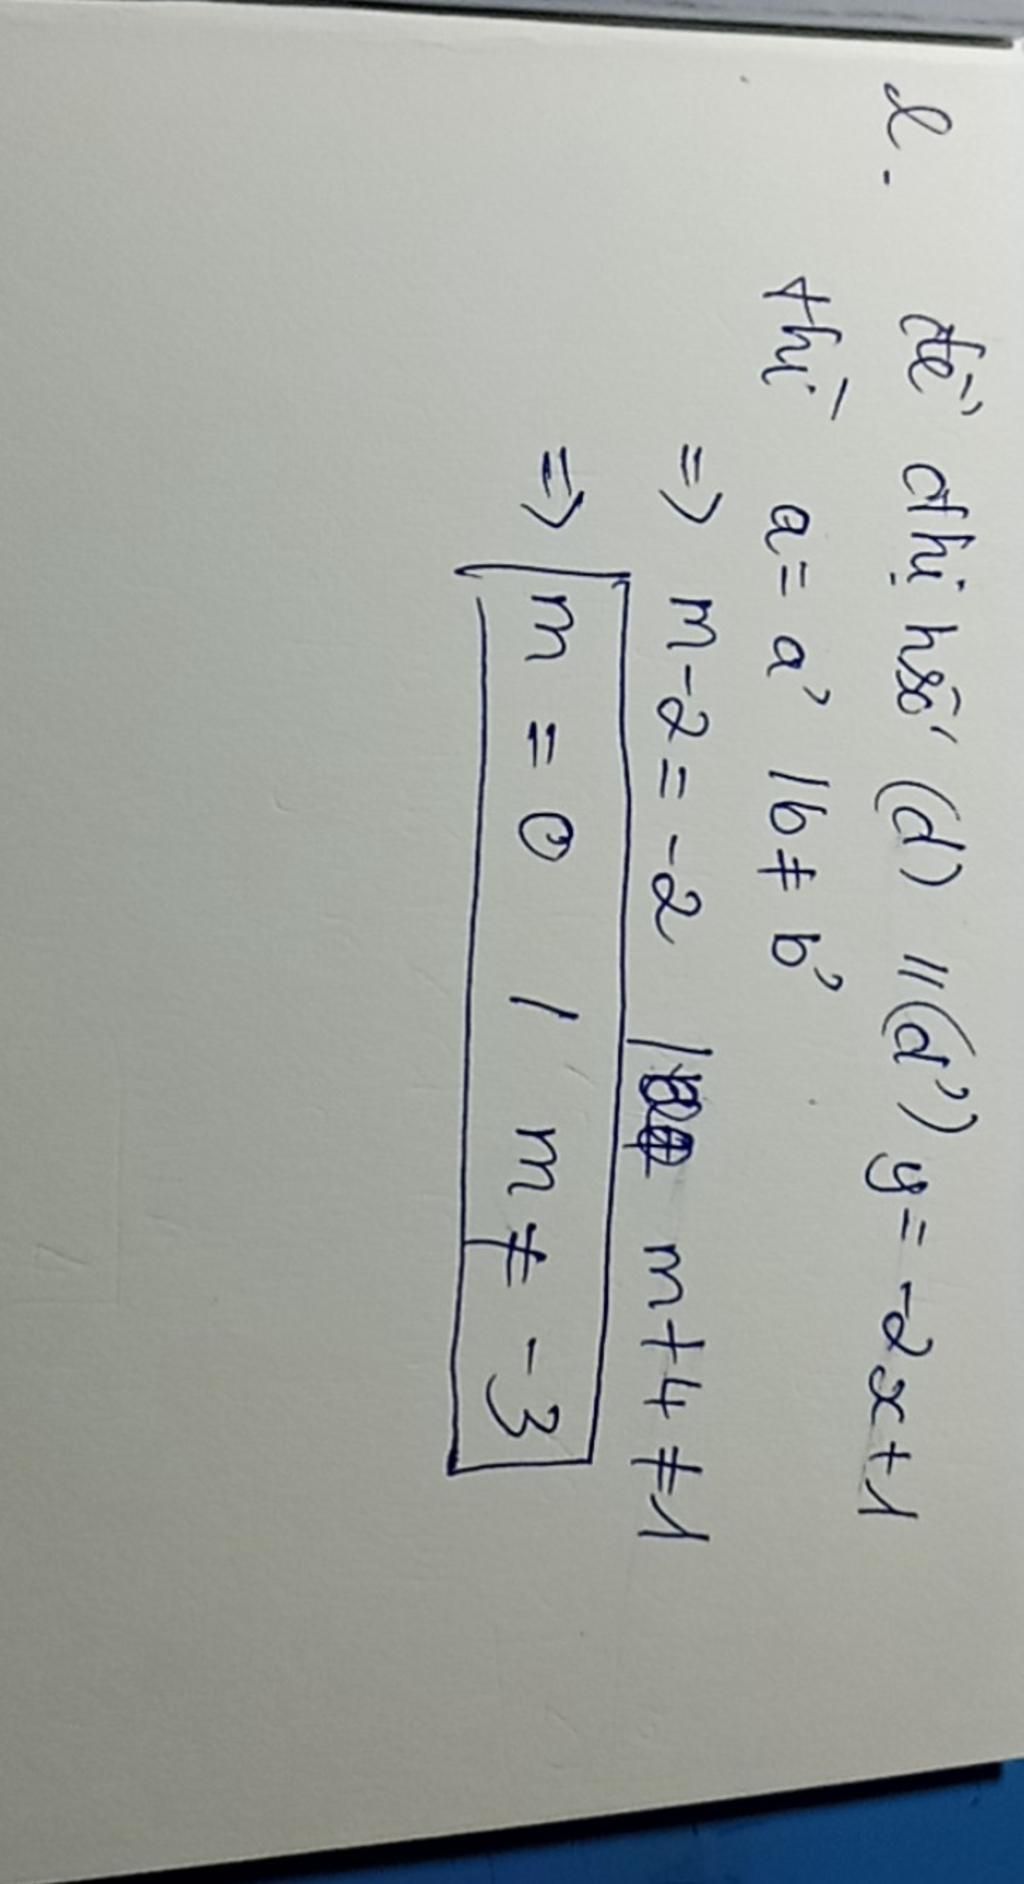 l. để đthị hsố (d) //(d') y = -2x+1
thì a = a' / b ≠ b'
=> m-2 = -2 / m+4 ≠ 1
=> m = 0 / m ≠ -3